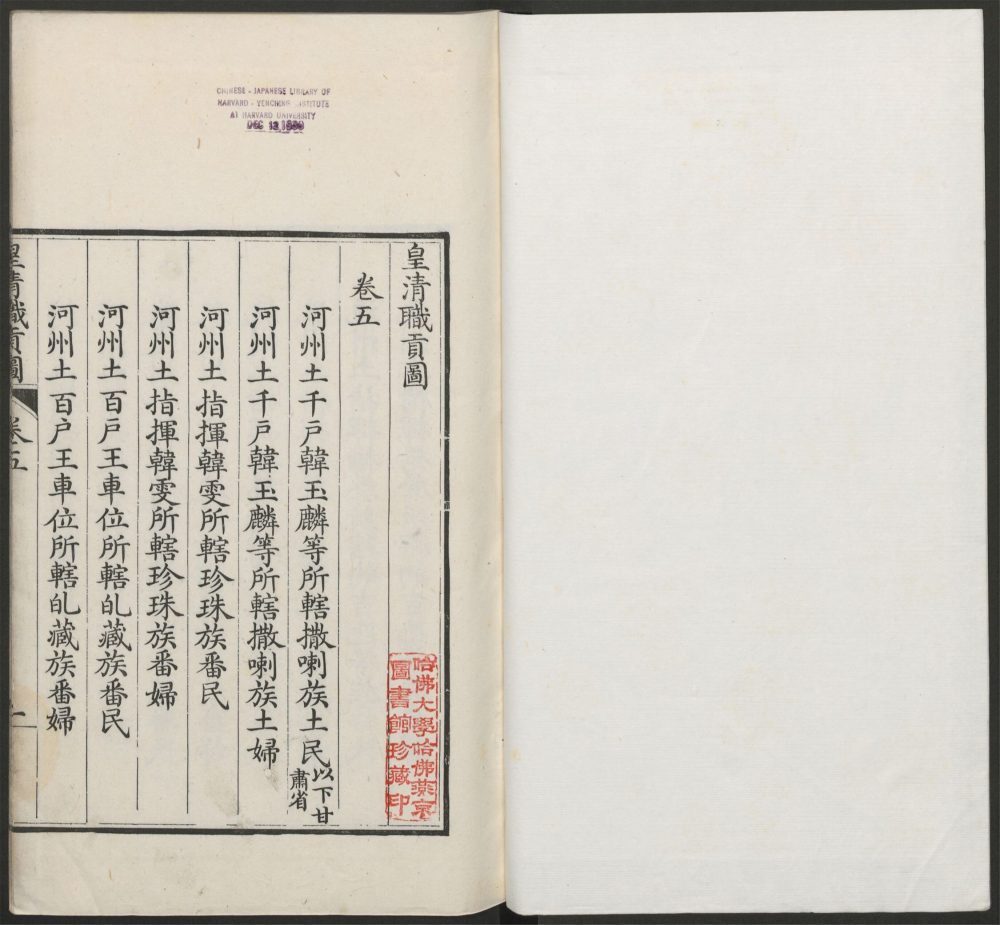 CHINESE - JAPANESE LIBRARY OF
HARVARD - YENCHING INSTITUTE
AT HARVARD UNIVERSITY
DEC 12 1950
皇清職貢圖
哈佛大學哈佛燕京
圖書館珍藏印
卷五
河州土千戶韓玉麟等所轄撒喇族土民以下甘肅省
河州土千戶韓玉麟等所轄撒喇族土婦
河州土指揮韓雯所轄珍珠族番民
河州土指揮韓雯所轄珍珠族番婦
河州土百戶王車位所轄癿藏族番民
河州土百戶王車位所轄癿藏族番婦
皇清職貢圖 卷五 一